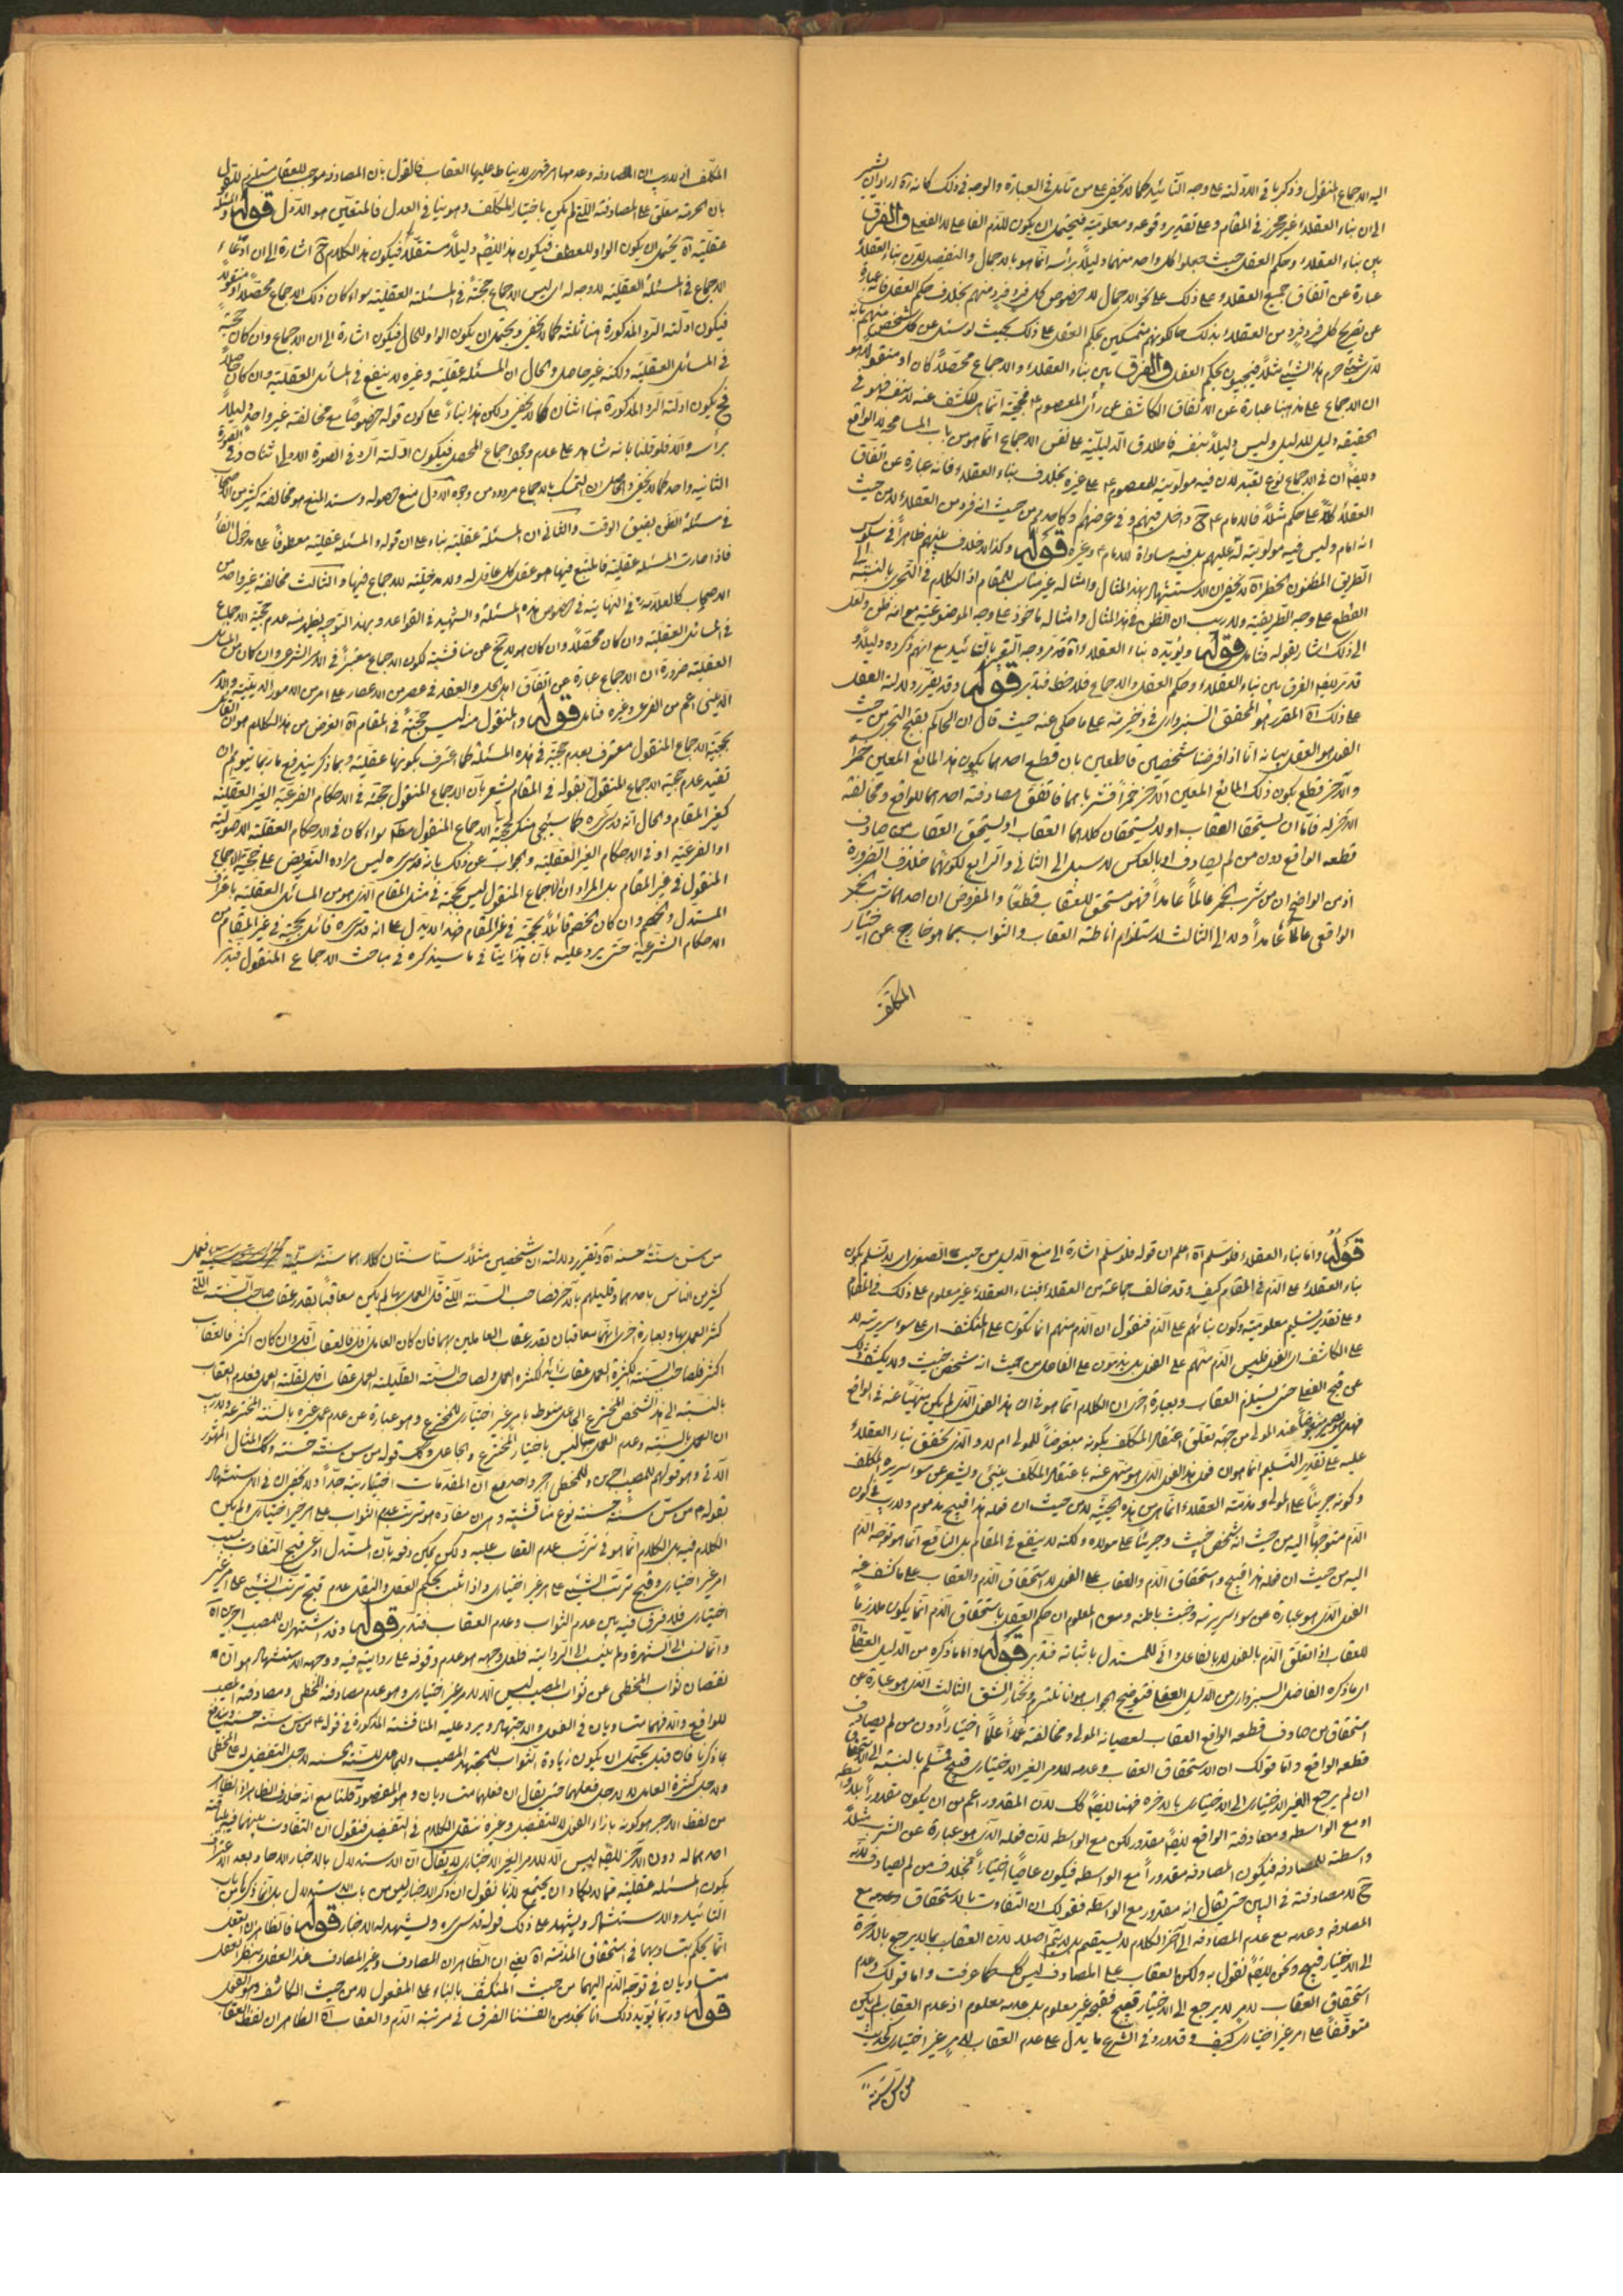 اليه الاجماع المنقول وذكر باقى الادلة على وجه التائيد كما لا يخفى على من تامل فى العبارة والوجه فى ذلك كانه اراد ان يشير
الى ان بناء العقلاء غير محرز فى المقام وعلى تقدير وقوعه ومعلوميته فيحتمل ان يكون للذم الفاعلى لا الفعلى والفرق
بين بناء العقلاء وحكم العقل حيث جعلوا كل واحد منهما دليلا برأسه انما هو بالاجمال والتفصيل لان بناء العقلاء
عبارة عن اتفاق جميع العقلاء على ذلك على نحو الاجمال لا خصوص كل فرد فرد منهم بخلاف حكم العقل فانه عبارة
عن تصريح كل فرد فرد من العقلاء بذلك حالكونهم متمسكين بحكم العقل على ذلك بحيث لو سئل عن كل شخص منهم بانه
لاى شئ حرم هذا الشئ مثلا فيجيبون بحكم العقل والفرق بين بناء العقلاء والاجماع محصلا كان او منقولا هو
ان الاجماع على مذهبنا عبارة عن الاتفاق الكاشف عن رأى المعصوم ع فحجيته انما هى للكشف عنه لا بنفسه فهو فى
الحقيقة دليل للدليل وليس دليلا بنفسه فاطلاق الدليلية على نفس الاجماع انما هو من باب المسامحة لا الواقع
وايضا ان فى الاجماع نوع تعبد لان فيه مولوية للمعصوم ع على غيره بخلاف بناء العقلاء فانه عبارة عن اتفاق
العقلاء كلا على حكم مثلا فالامام ع ح داخل فيهم وفى عرضهم وكاحدهم من حيث انه فرد من العقلاء لا من حيث
انه امام وليس فيه مولوية له عليهم بل فيه مساواة للامام ع وغيره قوله وكذا لا خلاف بينهم ظاهرا فى سلوك
الطريق المظنون الخطر اه لا يخفى ان الاستشهاد بهذا المثال وامثاله غير مناسب للمقام اذ الكلام فى التجرى بالنسبة الى
القطع على وجه الطريقية ولا ريب ان الظن فى هذا المثال وامثاله ماخوذ على وجه الموضوعية مع انه ظن ولعل
الى ذلك اشار بقوله فتامل قوله ويؤيده بناء العقلاء اه قد مر وجه التعبير بالتائيد مع انهم ذكروه دليلا و
قد مر ايضا الفرق بين بناء العقلاء وحكم العقل والاجماع فلاحظ فتدبر قوله وقد يقرر دلالة العقل
على ذلك اه المقرر هو المحقق السبزوارى فى ذخيرته على ما حكى عنه حيث قال ان الحاكم بقبح التجرى من حيث
الفعل هو العقل بيانه انا اذا فرضنا شخصين قاطعين بان قطع احدهما بكون هذا المائع المعين خمرا
والآخر قطع بكون ذلك المائع المعين الآخر خمرا فشرباهما فاتفق مصادفة احدهما للواقع ومخالفة
الآخر له فاما ان يستحقا العقاب او لا يستحقان كلاهما العقاب او يستحق العقاب من صادف
قطعه الواقع دون من لم يصادف او بالعكس لا سبيل الى الثانى والرابع لكونهما خلاف الضرورة
اذ من الواضح ان من شرب الخمر عالما عامدا فهو مستحق للعقاب قطعا والمفروض ان احدهما شرب الخمر
الواقعى عالما عامدا ولا الى الثالث لاستلزام اناطة العقاب والثواب بما هو خارج عن اختيار
المكلف
المكلف اذ لا ريب ان المصادفة وعدمها امر قهرى لا يناط عليها العقاب فالقول بان المصادفة موجب للعقاب مستلزم للقول
بان الحرمة معلق على المصادفة اللتى لم يكن باختيار المكلف وهو ينافى العدل فالمتعين هو الاول قوله والمسئلة
عقلية اه يحتمل ان يكون الواو للعطف فيكون هذا ايضا دليلا مستقلا فيكون هذا الكلام ح اشارة الى ان ادعاء
الاجماع فى المسئلة العقلية لا وجه له اى ليس الاجماع حجة فى المسئلة العقلية سواء كان ذلك الاجماع محصلا او منقولا
فيكون ادلة الرد المذكورة هنا ثلثة كما لا يخفى ويحتمل ان يكون الواو للحال فيكون اشارة الى ان الاجماع وان كان حجة
فى المسائل العقلية ولكنه غير حاصل والحال ان المسئلة عقلية وغيره لا ينفع فى المسائل العقلية وان كان حاصلا
فح يكون ادلة الرد المذكورة هنا اثنان كما لا يخفى ولكن هذا بناء على كون قوله خصوصا مع مخالفة غير واحد دليلا
برأسه والا فلو قلنا بانه شاهد على عدم وجود اجماع المحصل فيكون ادلة الرد فى الصورة الاولى اثنان وفى الصورة
الثانية واحد كما لا يخفى والحاصل ان التمسك بالاجماع مردود من وجوه الاول منع حصوله وسند المنع هو مخالفة كثير من الاصحاب
فى مسئلة الظن بضيق الوقت والثانى ان المسئلة عقلية بناء على ان قوله والمسئلة عقلية معطوفا على مدخول الفاء
فاذا صارت المسئلة عقلية فالمتبع فيها هو عقل كل عاقل له ولا مدخلية للاجماع فيها والثالث مخالفة غير واحد من
الاصحاب كالعلامة ره فى النهاية فى خصوص هذه المسئلة والشهيد فى القواعد وبهذا التوجيه يظهر منه عدم حجية الاجماع
فى المسائل العقلية وان كان محصلا وان كان هو لا يخ عن مناقشة لكون الاجماع معتبرا فى الامر الشرعى وان كان من المسائل
العقلية ضرورة ان الاجماع عبارة عن اتفاق اهل الحل والعقد فى عصر من الاعصار على امر من الامور الدينية والامر
الدينى اعم من الفرعى وغيره فتامل قوله والمنقول منه ليس حجة فى المقام اه الغرض من هذا الكلام هو ان القائل
بحجية الاجماع المنقول معترف بعدم حجيته فى هذه المسئلة كما اعترف بكونها عقلية وبما ذكر يندفع ما ربما يتوهم ان
تقييد عدم حجية الاجماع المنقول بقوله فى المقام يشعر بان الاجماع المنقول حجة فى الاحكام الفرعية الغير العقلية
كغير المقام والحال انه قدس سره كما سيجئ منكر لحجية الاجماع المنقول مطلقا سواء كان فى الاحكام العقلية الاصولية
او الفرعية او فى الاحكام الغير العقلية والجواب عن ذلك بانه قدس سره ليس مراده التعريض على حجية الاجماع
المنقول فى غير المقام بل المراد ان الاجماع المنقول ليس حجة فى مثل المقام الذى هو من المسائل العقلية باعتراف
المستدل والخصم وان كان الخصم قائلا بحجيته فى غير المقام فهذا لا يدل على انه قدس سره قائل بحجيته فى غير المقام من
الاحكام الشرعية حتى يرد عليه بان هذا ينافى ما سيذكره فى مباحث الاجماع المنقول فتدبر
قوله واما بناء العقلاء فلو سلم اه اعلم ان قوله فلو سلم اشارة الى منع الدليل من حيث الصغرى اى لا نسلم بكون
بناء العقلاء على الذم فى المقام كيف وقد خالف جماعة من العقلاء فبناء العقلاء غير معلوم على ذلك فى المقام
وعلى تقدير تسليم معلوميته وكون بنائهم على الذم فنقول ان الذم منهم انما تكون على المنكشف اى على سوء سريرته لا
على الكاشف اى الفعل فليس الذم منهم على الفعل بل يذمون على الفاعل من حيث انه شخص خبيث ولا يكشف ذلك
عن قبح الفعل حتى يستلزم العقاب وبعبارة اخرى ان الكلام انما هو فى ان هذا الفعل الذى لم يكن منهيا عنه فى الواقع
فهل يصير مبغوضا عند المولى من جهة تعلق اعتقاد المكلف بكونه مبغوضا للمولى ام لا والذى يتحقق بناء العقلاء
عليه على تقدير التسليم انما هو ان فعل هذا الفعل الذى هو منهى عنه باعتقاد المكلف ينبئ ويشعر عن سوء سريرة المكلف
وكونه جريئا على المولى ومذمة العقلاء انما هى من هذه الحيثية لا من حيث ان فعله هذا قبيح مذموم ولا ريب فى كون
الذم متوجها اليه من حيث انه شخص خبيث وجريئا على مولاه ولكنه لا ينفع فى المقام بل النافع انما هو توجه الذم
اليه من حيث ان فعله هذا قبيح واستحقاق الذم والعقاب على الفعل لا استحقاق الذم والعقاب على ما كشف عنه
الفعل الذى هو عبارة عن سوء سريرته وخبث باطنه ومن المعلوم ان حكم العقل باستحقاق الذم انما يكون ملازما
للعقاب اذا تعلق الذم بالفعل لا بالفاعل وانى للمستدل باثباته فتدبر قوله واما ما ذكره من الدليل العقلى اه
اى ما ذكره الفاضل السبزوارى من الدليل العقلى فتوضيح الجواب هو انا نلتزم ونختار الشق الثالث الذى هو عبارة عن
استحقاق من صادف قطعه الواقع العقاب لعصيانه المولى ومخالفته عمدا علما اختيارا دون من لم يصادف
قطعه الواقع واما قولك ان الاستحقاق العقاب وعدمه للامر الغير الاختيارى قبيح فمسلم بالنسبة الى الاستحقاق
ان لم يرجع الغير الاختيارى الى الاختيارى بالاخرة فهنا ايضا كك لان المقدور اعم من ان يكون مقدورا بلا واسطة
او مع الواسطه ومصادفة الواقع ايضا مقدور لكن مع الواسطه لان فعله الذى هو عبارة عن الشرب مثلا
واسطة للمصادفه فيكون المصادفه مقدورا مع الواسطه فيكون عاصيا اختيارا بخلاف من لم يصادف لانه
ح لا مصادفة فى البين حتى يقال انه مقدور مع الواسطه فقولك ان التفاوت بالاستحقاق وعدمه مع
المصادفه وعدمه مع عدم المصادفه الى آخر الكلام لا يستقيم بل لا يتم اصلا لان العقاب بما لا يرجع بالاخرة
الى الاختيار قبيح ونحن ايضا نقول به ولكن العقاب على المصادف ليس كك كما عرفت واما قولك وعدم
استحقاق العقاب لامر لا يرجع الى الاختيار قبيح فقبحه غير معلوم بل عدمه معلوم اذ عدم العقاب لم يكن
متوقفا على امر غير اختيارى كيف وقد ورد فى الشرع ما يدل على عدم العقاب لامر غير اختيارى كحديث
من سن سنة
من سن سنة حسنة اه وتقرير دلالته ان شخصين مثلا سنا سنتان كلاهما سنة سيئة فعمل
كثير من الناس باحدهما وقليلهم بالآخر فصاحب السنة اللتى قل العمل بها لم يكن معاقبا بقدر عقاب صاحب السنة اللتى
كثر العمل بها وبعبارة اخرى انهما معاقبان بقدر عقاب العاملين بهما فان كان العامل اقل فالعقاب اقل وان كان اكثر فالعقاب
اكثر فلصاحب السنة الكثيرة العمل عقاب زائد لكثرة العمل ولصاحب السنة القليلة العمل عقاب اقل لقلة العمل فعدم العقاب
بالنسبة الى هذا الشخص المخترع الجاعل منوط بامر غير اختيارى للمخترع وهو عبارة عن عدم عمل غيره بالسنة المخترعة لا ريب
ان العمل بالسنة وعدم العمل بها ليس باختيار المخترع والجاعل وكك قوله من سن سنة حسنة وكك المثال المشهور
الآتى وهو قولهم للمصيب اجران وللمخطى اجر واحد مع ان المقدمات اختيارية جدا ولا يخفى ان فى الاستشهاد
بقوله ع من سن سنة حسنة نوع مناقشة وهى ان مفاده هو ترتب عدم الثواب على امر غير اختيارى ولم يكن
الكلام فيه بل الكلام انما هو فى ترتب عدم العقاب عليه ولكن يمكن دفعه بان المستدل ادعى قبح التفاوت بسبب
امر غير اختيارى وقبح ترتب الشئ على امر غير اختيارى واذا ثبت بحكم العقل والنقل عدم قبح ترتب الشئ على امر غير
اختيارى فلا فرق فيه بين عدم الثواب وعدم العقاب فتدبر قوله وقد اشتهر ان للمصيب اجرين اه
وانما نسب الى الشهرة ولم ينسب الى الرواية فلعل وجهه هو عدم وقوفه على رواية فيه ووجه الاستشهاد هو ان
نقصان ثواب المخطى عن ثواب المصيب ليس الا لامر غير اختيارى وهو عدم مصادفة المخطى ومصادفة المصيب
للواقع والا فهما متساويان فى الفعل والاجتهاد ويرد عليه المناقشة المذكورة فى قوله ع من سن سنة حسنة ويندفع
بما ذكرنا فان قيل يحتمل ان يكون زيادة الثواب للمجتهد المصيب والجاعل للسنة الحسنة لاجل التفضل لا على المخطى
ولاجل كثرة العامل لا لاجل فعلهما حتى يقال ان فعلهما متساويان وهو المقصود قلنا مع انه خلاف الظاهر اذ الظاهر
من لفظ الاجر هو كونه بازاء الفعل لا للتفضل وغيره ننقل الكلام فى التفضل فنقول ان التفاوت بينهما فيه باضافة
احدهما له دون الآخر ايضا ليس الا للامر الغير الاختيارى لا يقال ان الاستدلال بالاخبار الآحاد بعد الاعتراف
بكون المسئلة عقلية مما لا يكاد ان يجتمع لانا نقول ان ذكر الاخبار ليس من باب الاستدلال بل انما ذكر من باب
التائيد والاستشهاد ويشهد على ذلك قوله قدس سره ويشهد له الاخبار قوله فالظاهر ان العقل
انما يحكم بتساويهما فى استحقاق المذمة اه يعنى ان الظاهر ان المصادف وغير المصادف عند العقل وبنظر العقل
متساويان فى توجه الذم اليهما من حيث المنكشف بالبناء على المفعول لا من حيث الكاشف وهو الفعل
قوله وربما يؤيد ذلك انا نجد من انفسنا الفرق فى مرتبة الذم والعقاب اه الظاهر ان لفظ العقاب